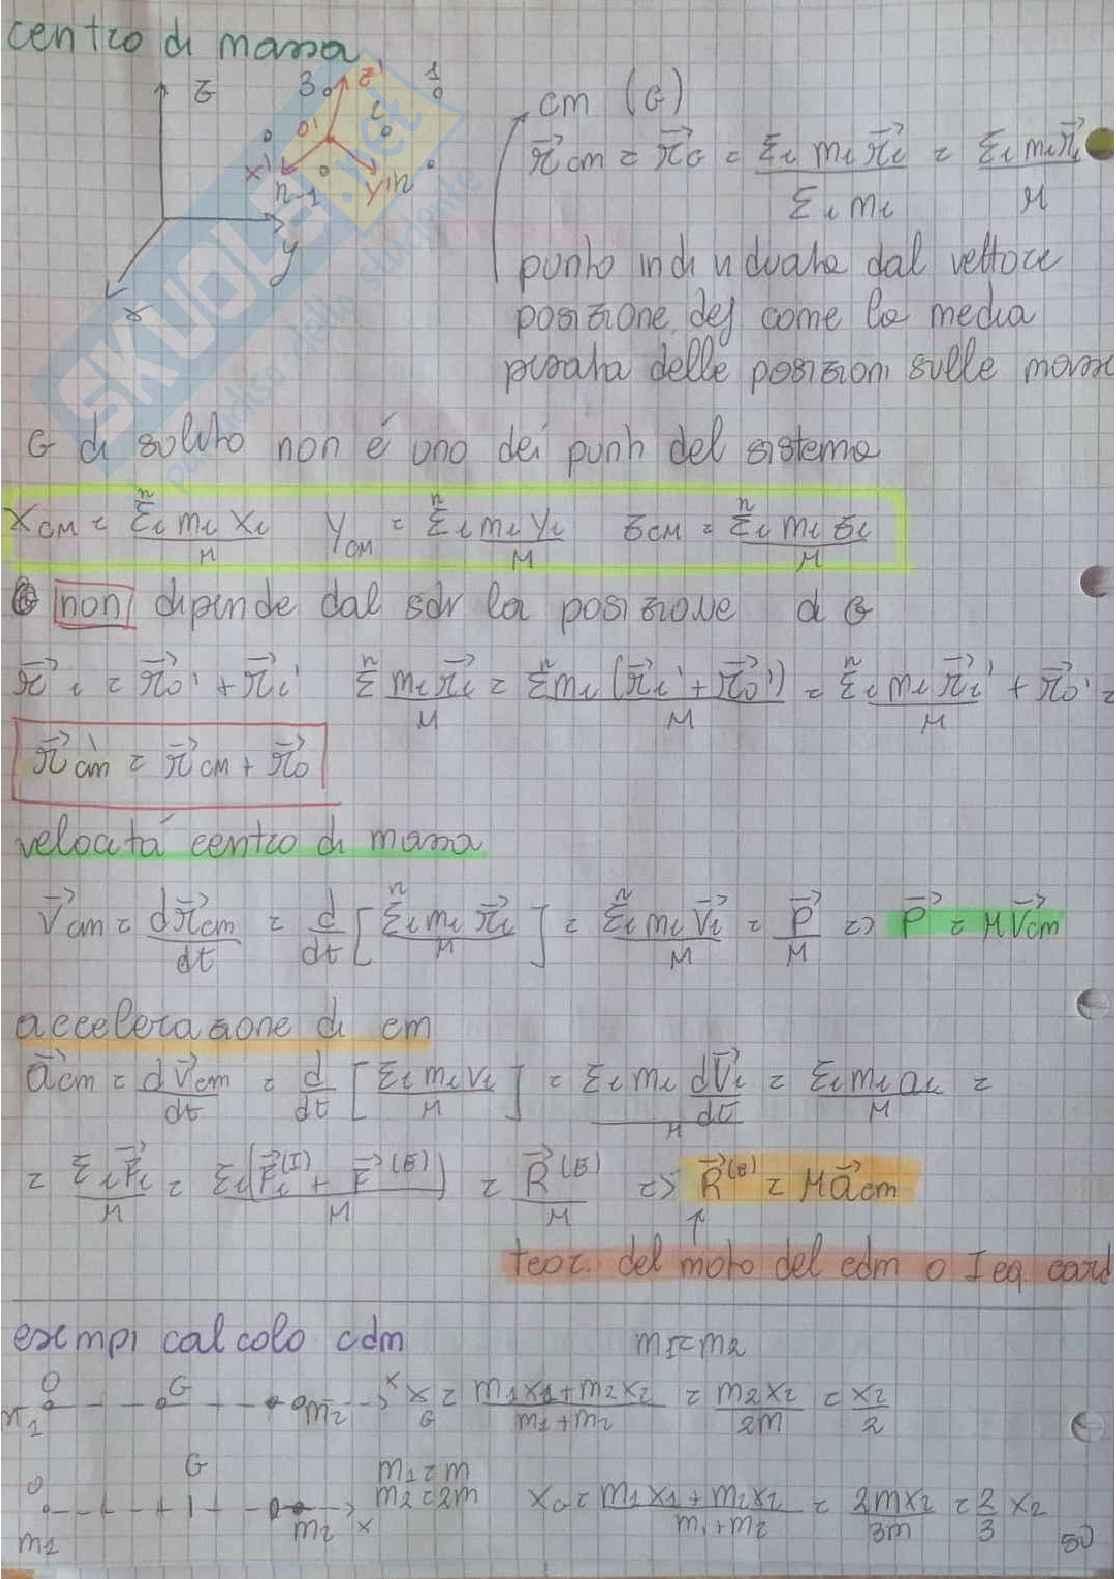 centro di massa
z 3 z' 1
i
O'
x' n-1 y' n
y
x
cm (G)
r⃗cm = r⃗G = Σi mi r⃗i / Σi mi = Σi mi r⃗i / M
punto individuato dal vettore
posizione def come la media
pesata delle posizioni sulle masse
G di solito non é uno dei punti del sistema
xCM = Σⁿi mi xi / M   yCM = Σⁿi mi yi / M   zCM = Σⁿi mi zi / M
non dipende dal sdr la posizione di G
r⃗i = r⃗o' + r⃗i'   Σⁿ mi r⃗i / M = Σⁿ mi (r⃗i' + r⃗o') / M = Σⁿi mi r⃗i' / M + r⃗o' =
r⃗cm' = r⃗cm + r⃗o
velocitá centro di massa
v⃗cm = d r⃗cm / dt = d/dt [Σⁿi mi r⃗i / M] = Σⁿi mi v⃗i / M = P⃗ / M => P⃗ = M v⃗cm
accelerazione di cm
a⃗cm = d v⃗cm / dt = d/dt [Σi mi vi / M] = Σi mi d v⃗i/dt / M = Σi mi ai / M =
= Σi F⃗i / M = Σi (F⃗i(I) + F⃗(E)) / M = R⃗(E) / M => R⃗(E) = M a⃗cm
teor. del moto del cdm o I eq. card
esempi calcolo cdm   m1 = m2
O G x
m1 m2
xG = m1x1 + m2x2 / m1 + m2 = m2x2 / 2m = x2 / 2
O G m1 = m
m2 = 2m
m1 m2 x
xG = m1x1 + m2x2 / m1 + m2 = 2mx2 / 3m = 2/3 x2
50
SKUOLA.net